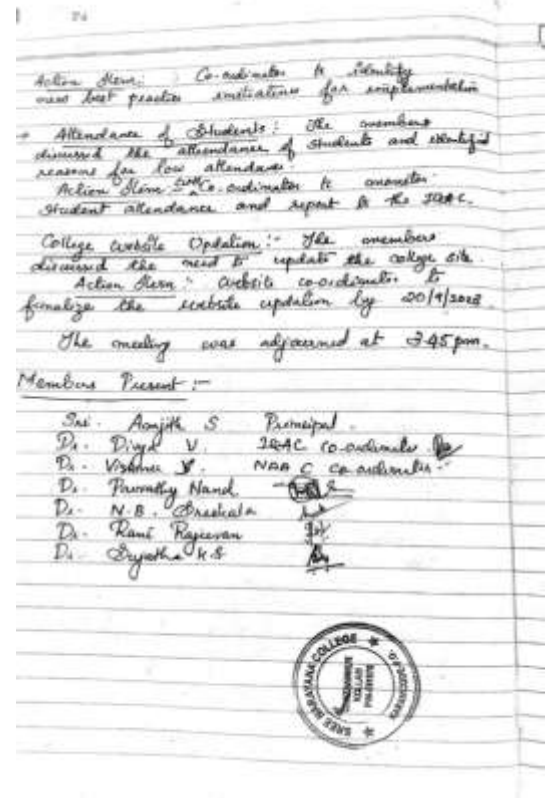 Action Item: Co-ordinator to identify
new best practice initiatives for implementation
Attendance of Students: The members
discussed the attendance of students and identified
reasons for low attendance.
Action Item: Co-ordinator to monitor
student attendance and report to the IQAC.
College website Updation:- The members
discussed the need to update the college site.
Action Item: Website co-ordinator to
finalize the website updation by 20/9/2023.
The meeting was adjourned at 3.45 pm.
Members Present:-
Sri. S Principal.
Dr. Divya V. IQAC co-ordinator
Dr. V. NAAC co-ordinator
Dr. Parvathy Nand
Dr. N.B. Sreekala
Dr. Rani Rajeevan
Dr. Sujatha K S
SREE NARAYANA COLLEGE
KOLLAM